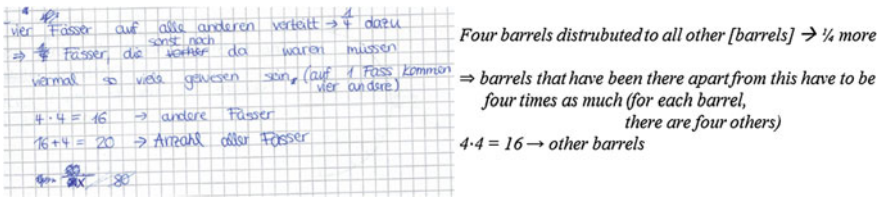 vier Fässer auf alle anderen verteilt → 1/4 dazu
⇒ Fässer, die sonst noch da waren müssen
viermal so viele gewesen sein, (auf 1 Fass kommen
vier andere)
4 · 4 = 16 → andere Fässer
16 + 4 = 20 → Anzahl aller Fässer
80
Four barrels distrubuted to all other [barrels] → ¼ more
⇒ barrels that have been there apart from this have to be
four times as much (for each barrel,
there are four others)
4·4 = 16 → other barrels